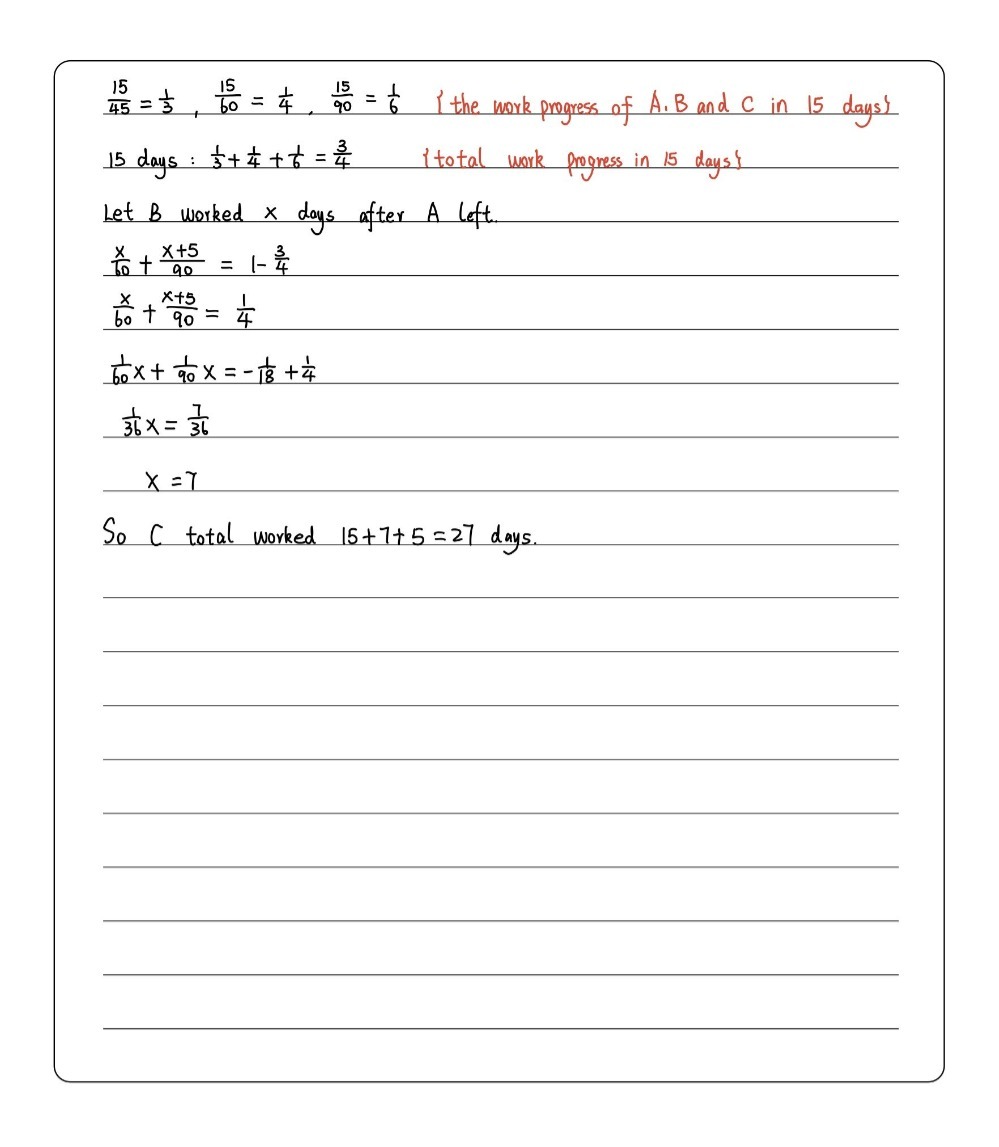 15/45 = 1/3 , 15/60 = 1/4 , 15/90 = 1/6 {the work progress of A.B and C in 15 days}
15 days : 1/3 + 1/4 + 1/6 = 3/4 {total work progress in 15 days}
Let B worked x days after A left.
x/60 + (x+5)/90 = 1 - 3/4
x/60 + (x+5)/90 = 1/4
1/60 x + 1/90 x = - 1/18 + 1/4
1/36 x = 7/36
x = 7
So C total worked 15+7+5=27 days.